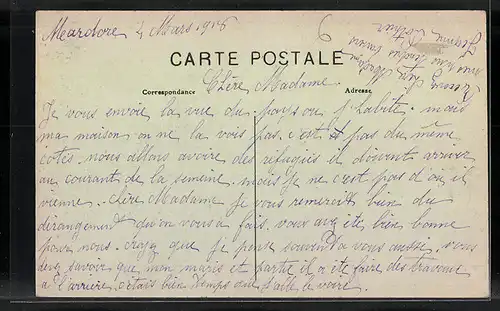 Meardore 4 Mars 1916
CARTE POSTALE
Correspondance
Adresse
Chère Madame.
Je vous envoie la vue du pays ou j'habite. mais
ma maison on ne la vois pas. c'est pas du même
cotés. nous allons avoire des réfugiés il doivent arrivez
au courant de la semeine. mais je ne c'est pas d'où il
vienne. Chère Madame je vous remercirest bien du
dérangement qu'on vous a fais, vous avez été bien bonne
pour nous. croyez que je pense souvend a vous aussie, vous
devez savoir que mon maris et partie il a été faire des travaux
a l'arrière. c'etais bien temps que j'aile le voire.